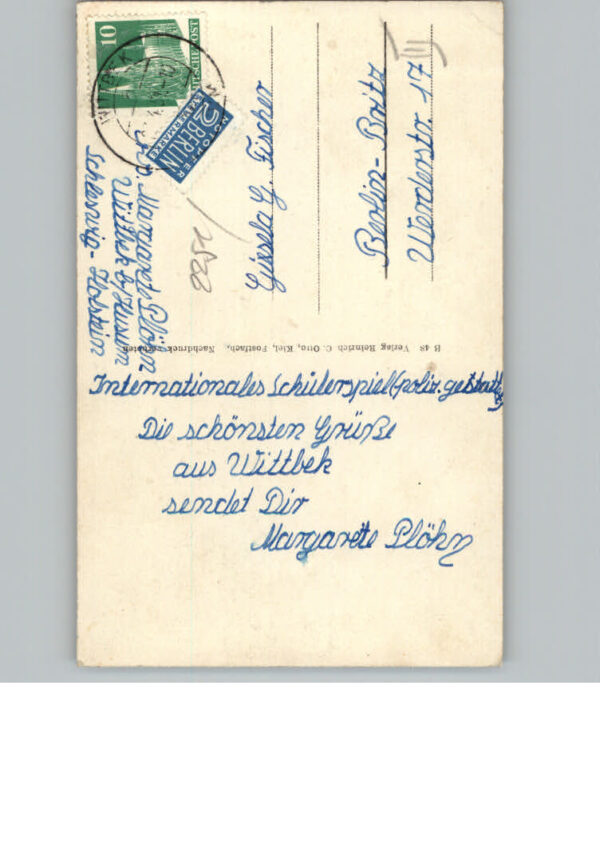 Internationales Schülerspiel (poliz. gestattet)
Die schönsten Grüße
aus Wittbek
sendet Dir
Margarete Plöhn
Gisela G. Fischer
Berlin-Britz
Werderstr. 17
III
2251
Margarete Plöhn
Wittbek b/Husum
Schleswig-Holstein
10
DEUTSCHE POST
NOTOPFER
2 BERLIN
STEUERMARKE
WITTBEK
B 48 Verlag Heinrich C. Otto, Kiel, Postfach, Nachdruck verboten